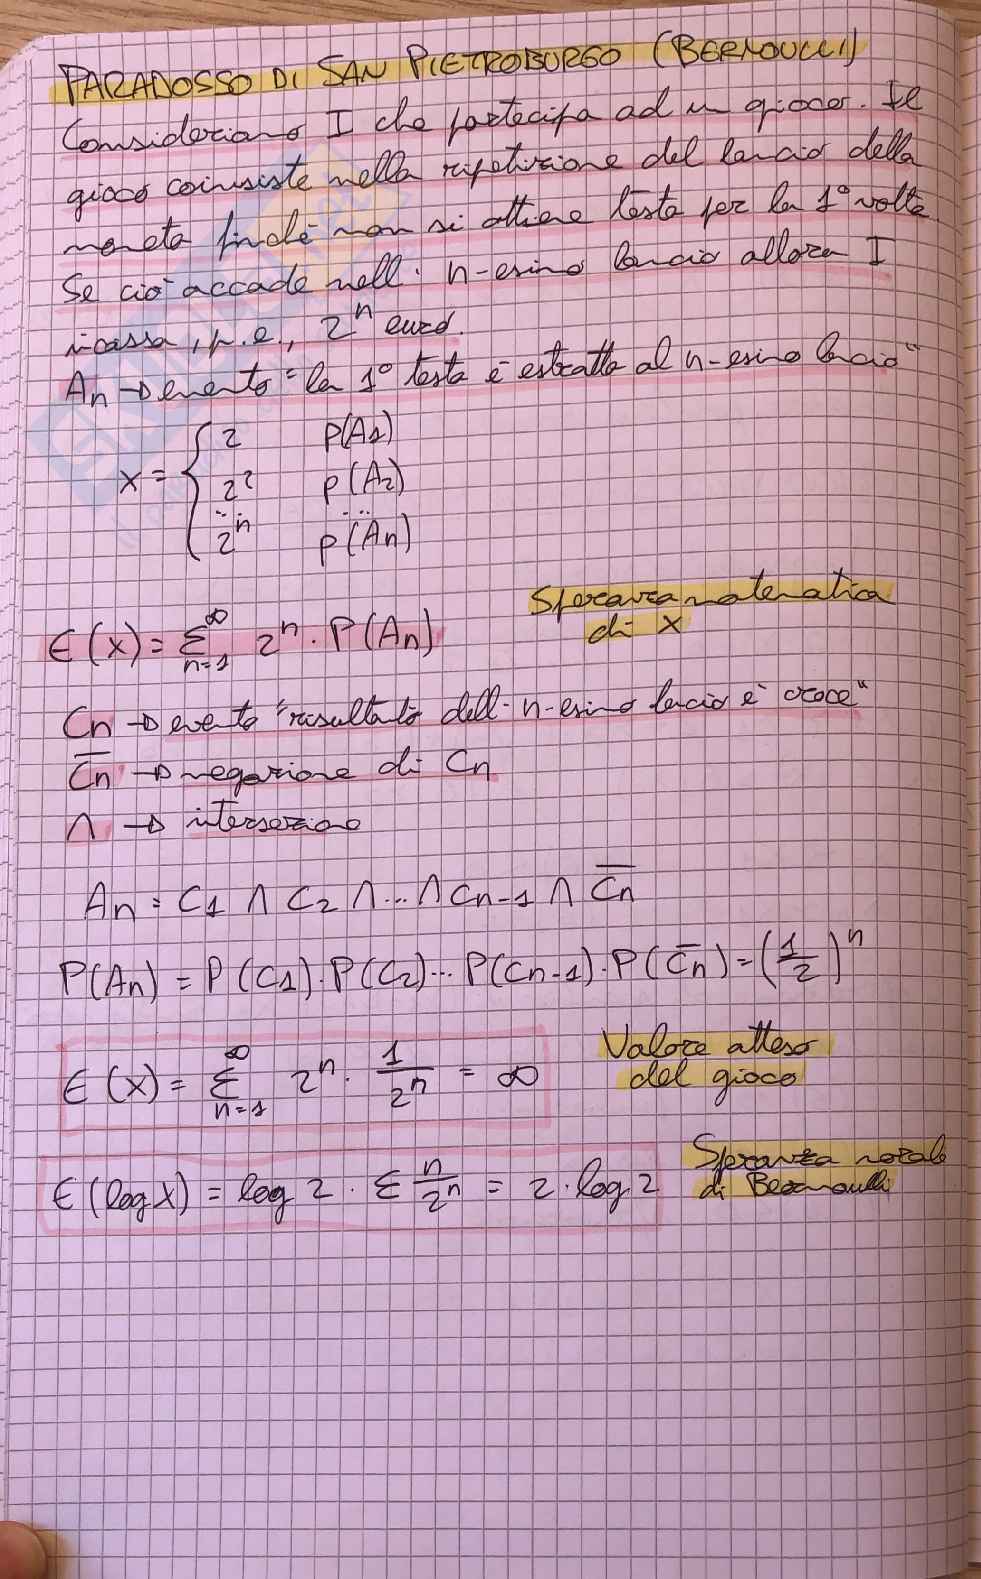 PARADOSSO DI SAN PIETROBURGO (BERNOULLI)
Consideriamo I che partecipa ad un gioco. Il
gioco coinsiste nella ripetizione del lancio della
moneta finché non si ottiene testa per la 1° volta.
Se ciò accade nell' n-esimo lancio allora I
incassa, p.e., 2^n euro.
An → evento "la 1° testa è estratta al n-esimo lancio"
x = { 2 p(A1)
2² p(A2)
... ...
2^n p(An)
E(x) = Σ_{n=1}^{∞} 2^n · P(An) Speranza matematica
di x
Cn → evento "risultato dell' n-esimo lancio è croce"
C̅n → negazione di Cn
∧ → intersezione
An = C1 ∧ C2 ∧ ... ∧ Cn-1 ∧ C̅n
P(An) = P(C1) · P(C2) ... P(Cn-1) · P(C̅n) = (1/2)^n
E(x) = Σ_{n=1}^{∞} 2^n · 1/2^n = ∞ Valore atteso
del gioco
E(log x) = log 2 · Σ n/2^n = 2 · log 2 Speranza morale
di Bernoulli